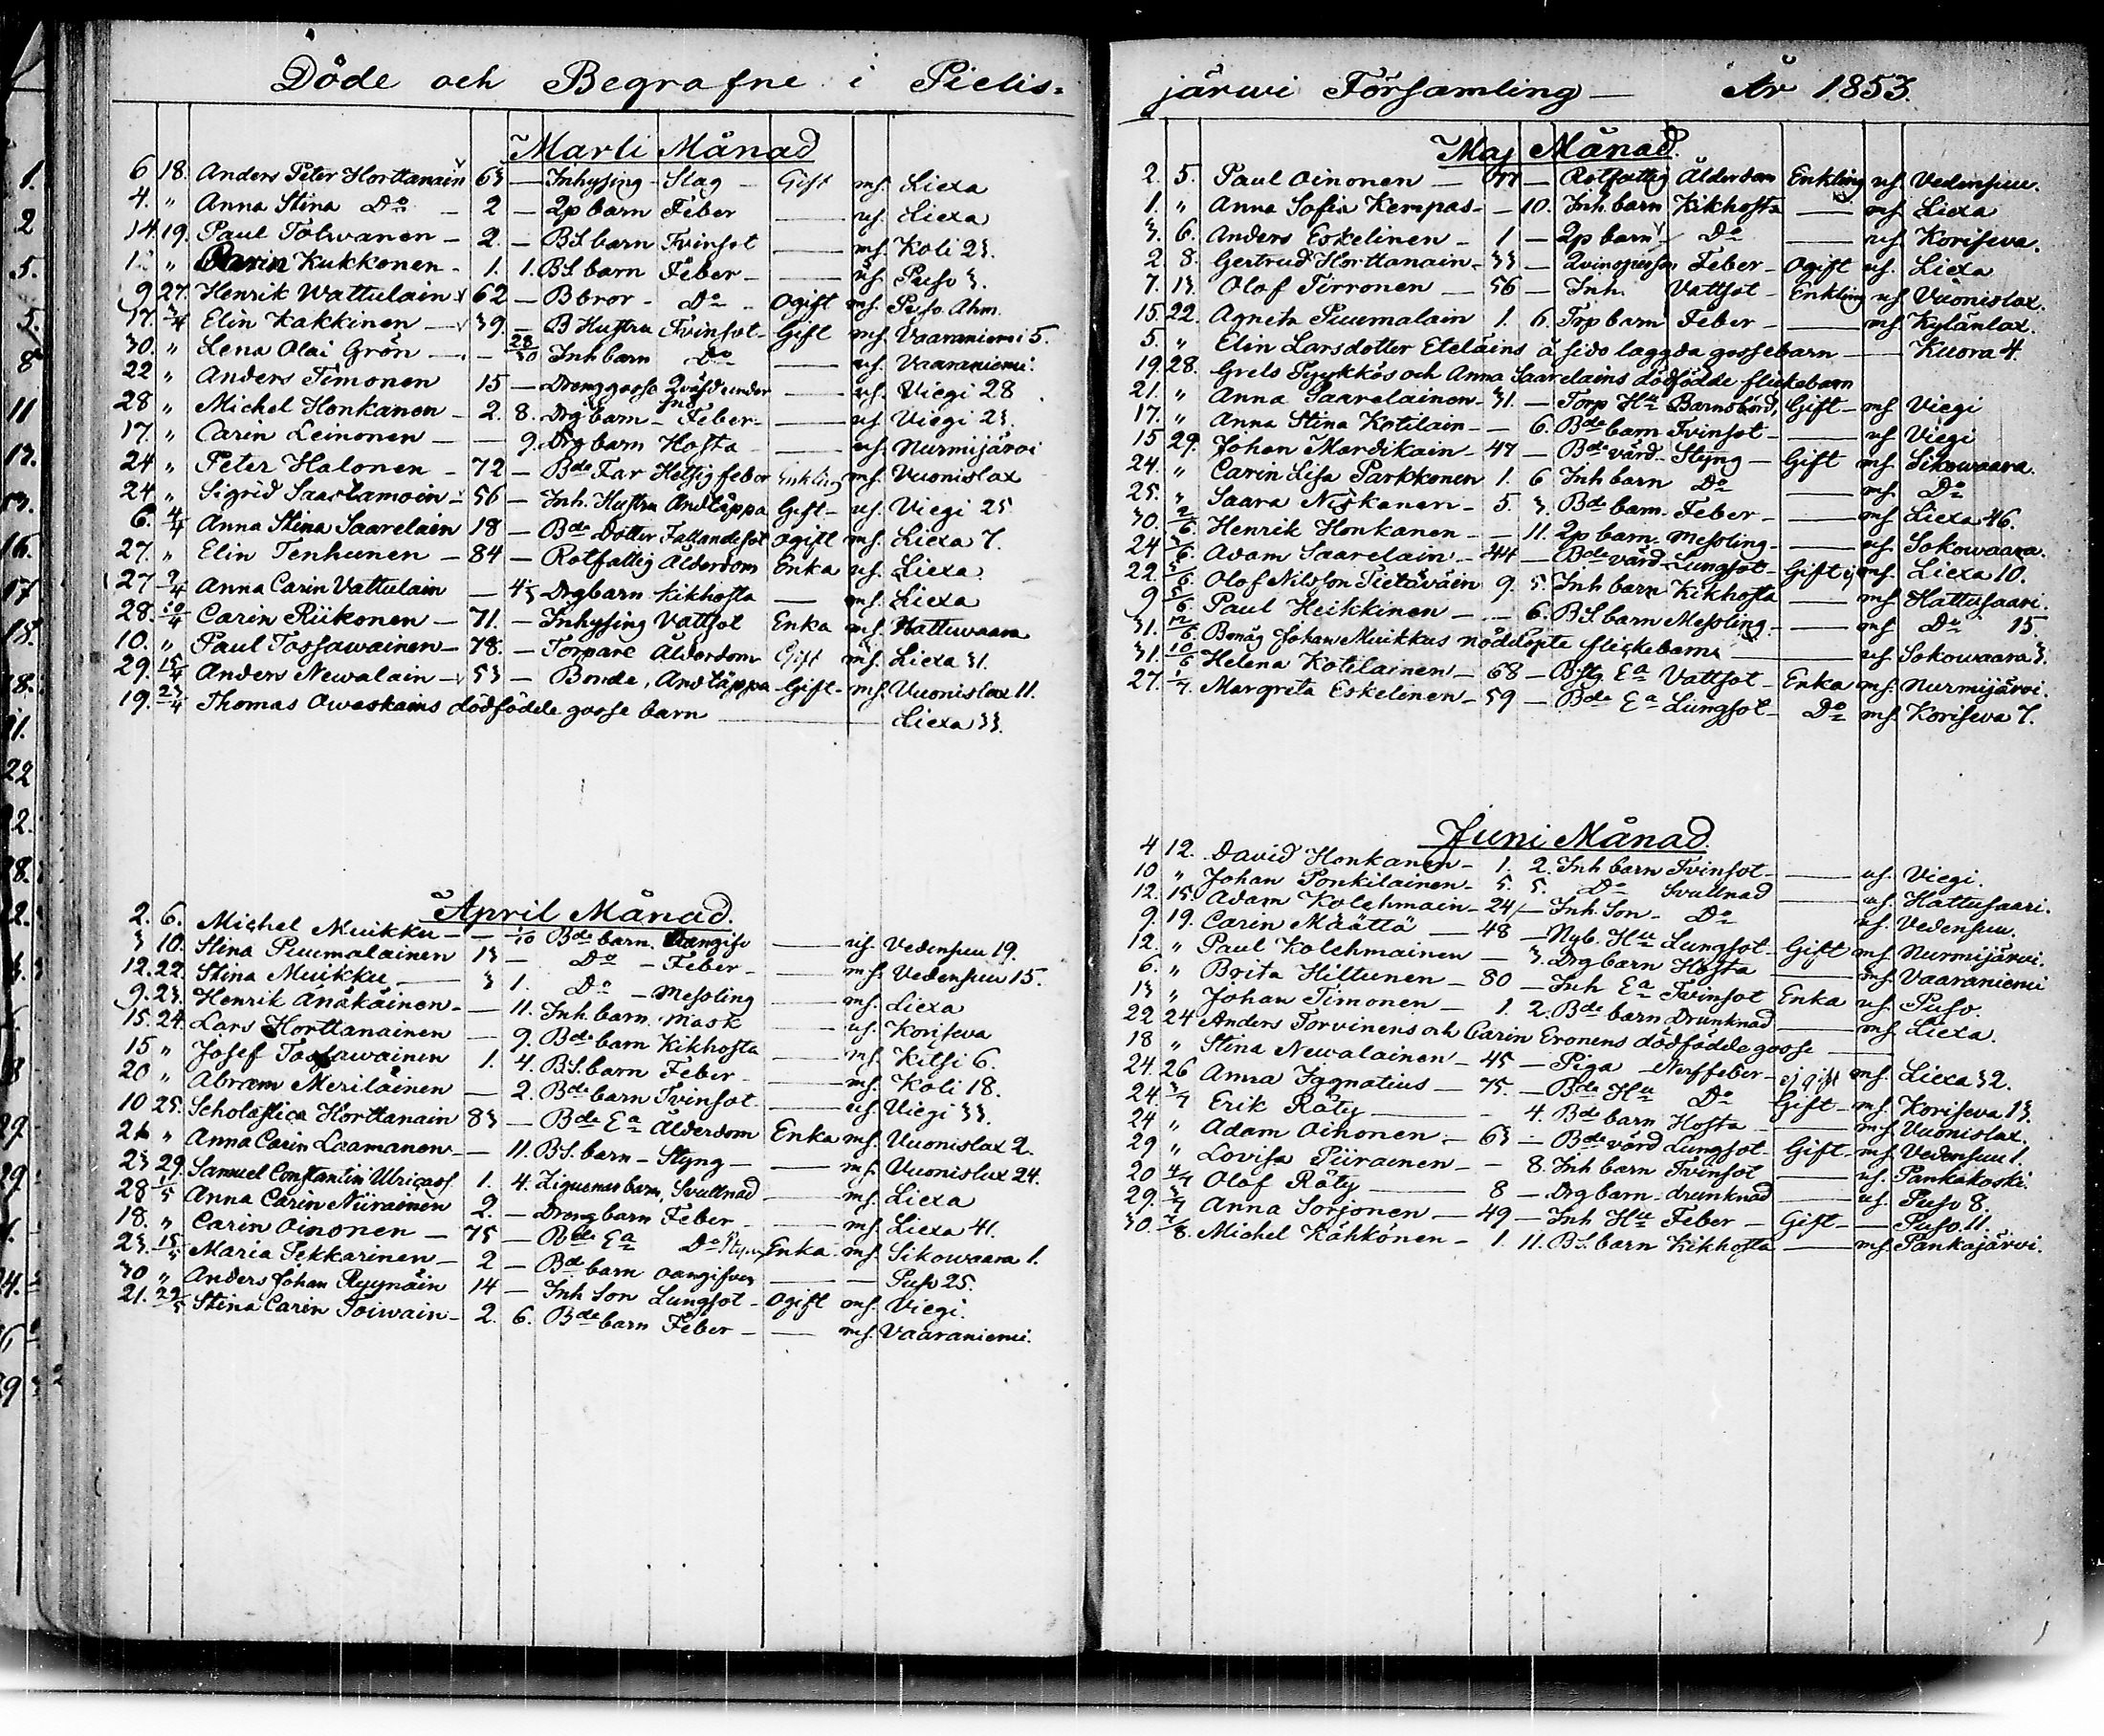 Döde och Begrafne i Pielis=
Marti Månad
6 18. Anders Peter Horttanain 63 — Inhysing Slag — Gift mf. Liexa
4. " Anna Stina Do — 2 — 2p barn Feber — uf. Liexa
14. 19. Paul Tolwanen — 2. — BS. barn Tvinsot — mf. Koli 23.
1. " Carin Kukkonen — 1. 1. BS barn Feber — uf. Puso 3.
9 27. Henrik Wattulain 62 — Bbror — Do — Ogift mf.
17. 3/4 Elin Kakkinen — 39. — B Hustru Tvinsot — Gift mf. Vaaraniemi 5.
30. " Lena Olai Grön — — 28/30 Inh barn Do — uf. Vaaraniemi
22 " Anders Timonen 15 — Drenggosse — uf. Viegi 28
28 " Michel Honkanen — 2. 8. Drg barn — Feber — uf. Viegi 23.
17. " Carin Leinonen — — 9. Drg barn Hosta — uf. Nurmijärvi
24 " Peter Halonen — 72 — Bde Far Hetsig feber Enkling mf. Vuonislax
24 " Sigrid Saastamoin — 56 — Inh. Hustru Andtäppa Gift — uf. Viegi 25
6. 4/4 Anna Stina Saarelain 18 — Bde Dotter Fallandesot ogift mf. Liexa 7.
27. " Elin Tenhunen — 84 — Rotfattig Ålderdom Enka uf. Liexa.
27 Anna Carin Vattulain — 4 1/3 Drgbarn kikhosta — mf. Liexa
28. 10/4 Carin Riikonen — 71. — Inhysing Vattsot Enka uf. Hattuvaara
10. " Paul Tossawainen — 78. — Torpare Ålderdom Gift mf. Liexa 31.
29. 15/4 Anders Newalain — 53 — Bonde, Andtäppa — Gift — mf. Vuonislax 11.
19. 23/4 Thomas Oweskains dödfödde gosse barn — Liexa 33.
April Månad.
2. 6. Michel Muikku — — 1/10 Bde barn. Oangifv — uf. Vedensuu 19.
3 10. Stina Puumalainen 13 — Do — Feber — mf. Vedensuu 15.
12. 22. Stina Muikku — 3 1. Do — Messling — mf. Liexa
9. 23. Henrik Änäkäinen — — 11. Inh. barn. Mask — uf. Koriseva
15. 24. Lars Horttanainen — 9. Bde barn Kikhosta — mf. Kitsi 6.
15 " Josef Tossawainen 1. 4. BS. barn Feber — mf. Koli 18.
20 " Abram Meriläinen — 2. Bde barn Tvinsot — uf. Viegi 33.
10 25. Scholastica Horttanain 83 — Bde Ea Ålderdom Enka mf. Vuonislax 2.
21 " Anna Carin Laamanen — 11. BS. barn — Styng — mf. Vuonislax 24.
23 29. Samuel Constantin Ulricaos 1. 4. Ziguenar barn, Svullnad — mf. Liexa
28 1/5 Anna Carin Niirainen 2. — Dreng barn Feber — mf. Liexa 41.
18. " Carin Oinonen — 75 — Bde Ea Do Enka mf. Sikowaara 1.
23. 15/5 Maria Tekkarinen — 2 — Bde barn oangifven — Puso 25.
30 " Anders Johan Ryynäin 14 — Inh Son Lungsot — Ogift mf. Viegi.
21. 22/5 Stina Carin Toiwain — 2. 6. Bde barn Feber — mf. Vaaraniemi.
järwi Församling — År 1853.
Maj Månad.
2. 5. Paul Oinonen — 77 — Rotfattig Ålderdom Enkling uf. Vedensuu.
1. " Anna Sofia Kempas — — 10. Inh. barn Kikhosta — mf. Liexa
3. 6. Anders Eskelinen — 1 — 2p barn Do — uf. Koriseva.
2 8. Gertrud Horttanain — 33 — Qvinsperson Feber — Ogift uf. Liexa
7. 13. Olof Tirronen — 56 — Inh. Vattsot — Enkling uf. Vuonislax.
15. 22. Agneta Puumalain 1. 6. Trp barn Feber — mf. Kylänlax.
5. " Elin Larsdotter Eteläins å sido laggda gossebarn — Kuora 4.
19. 28. Grels Pyykkös och Anna Saarelains dödfödde flickebarn
21. " Anna Saarelainen — 31. — Torp Hu Barnsbörd, Gift — mf Viegi
17. " Anna Stina Kotilain — — 6. Bde barn Tvinsot — uf Viegi
15 29. Johan Mardikain — 47 — Bde värd — Styng — Gift mf Sikowaara.
24. " Carin Lisa Parkkonen 1. 6 Inh barn Do — mf. Do
25. " Saara Niskanen — 5. 3. Bde barn. Feber — mf Liexa 46.
30. 2/6 Henrik Honkanen — — 11. 2p barn. Messling — uf. Sokowaara.
24 3/6. Adam Saarelain — 44 — Bde värd Lungsot — Gift mf. Liexa 10.
22. 5/6 Olof Nilsson Pietäväin 9. 5. Inh barn Kikhosta — mf Hattusaari.
9 5/6. Paul Heikkinen — — 6. BS. barn Messling — mf Do 15.
31. 12/6. Benäg Johan Muikkus nöddöpte flickebarn — uf Sokowaara 3.
31. 10/6 Helena Kotilainen — 68 — Bstg Ea Vattsot — Enka mf. Nurmijärvi.
27. 1/7. Margreta Eskelinen — 59 — Bde Ea Lungsot — Do mf. Koriseva 7.
Juni Månad.
4 12. David Honkanen — 1. 2. Inh barn Tvinsot — uf. Viegi.
10 " Johan Ponkilainen — 5. 5. Do Svullnad — uf. Hattusaari.
12. 15. Adam Kolehmain — 24 — Inh. Son — Do uf. Vedensuu.
9. 19. Carin Määttä — 48 — Nyb. Hu Lungsot — Gift mf. Nurmijärvi.
12. " Paul Kolehmainen — 3. Drg barn Hosta — mf. Vaaraniemi
6. " Brita Hiltunen — 80 — Inh Ea Tvinsot Enka uf. Puso.
13 " Johan Timonen — 1. 2. Bde barn Drunknad — mf. Liexa.
22 24 Anders Torvinens och Carin Eronens dödfödde gosse —
18 " Stina Newalainen — 45 — Piga — Nerffeber — ej gift mf. Liexa 32.
24. 26 Anna Iggnatius — 75. — Bde Hu Do Gift — mf. Koriseva 13.
24. 3/7 Erik Räty — — 4. Bde barn Hosta — mf. Vuonislax.
24 " Adam Oinonen — 63 — Bde värd Lungsot — Gift — mf. Vedensuu 1.
29 " Lovisa Piirainen — — 8. Inh barn Tvinsot — uf. Pankakoski.
20 4/7 Olof Räty — 8 — Drg barn — drunknad — uf. Puso 8.
29. 3/7 Anna Sorjonen — 49 — Inh Hu Feber — Gift — — Puso 11.
30. 7/8. Michel Kähkönen — 1. 11. BS. barn Kikhosta — mf. Pankajärvi.